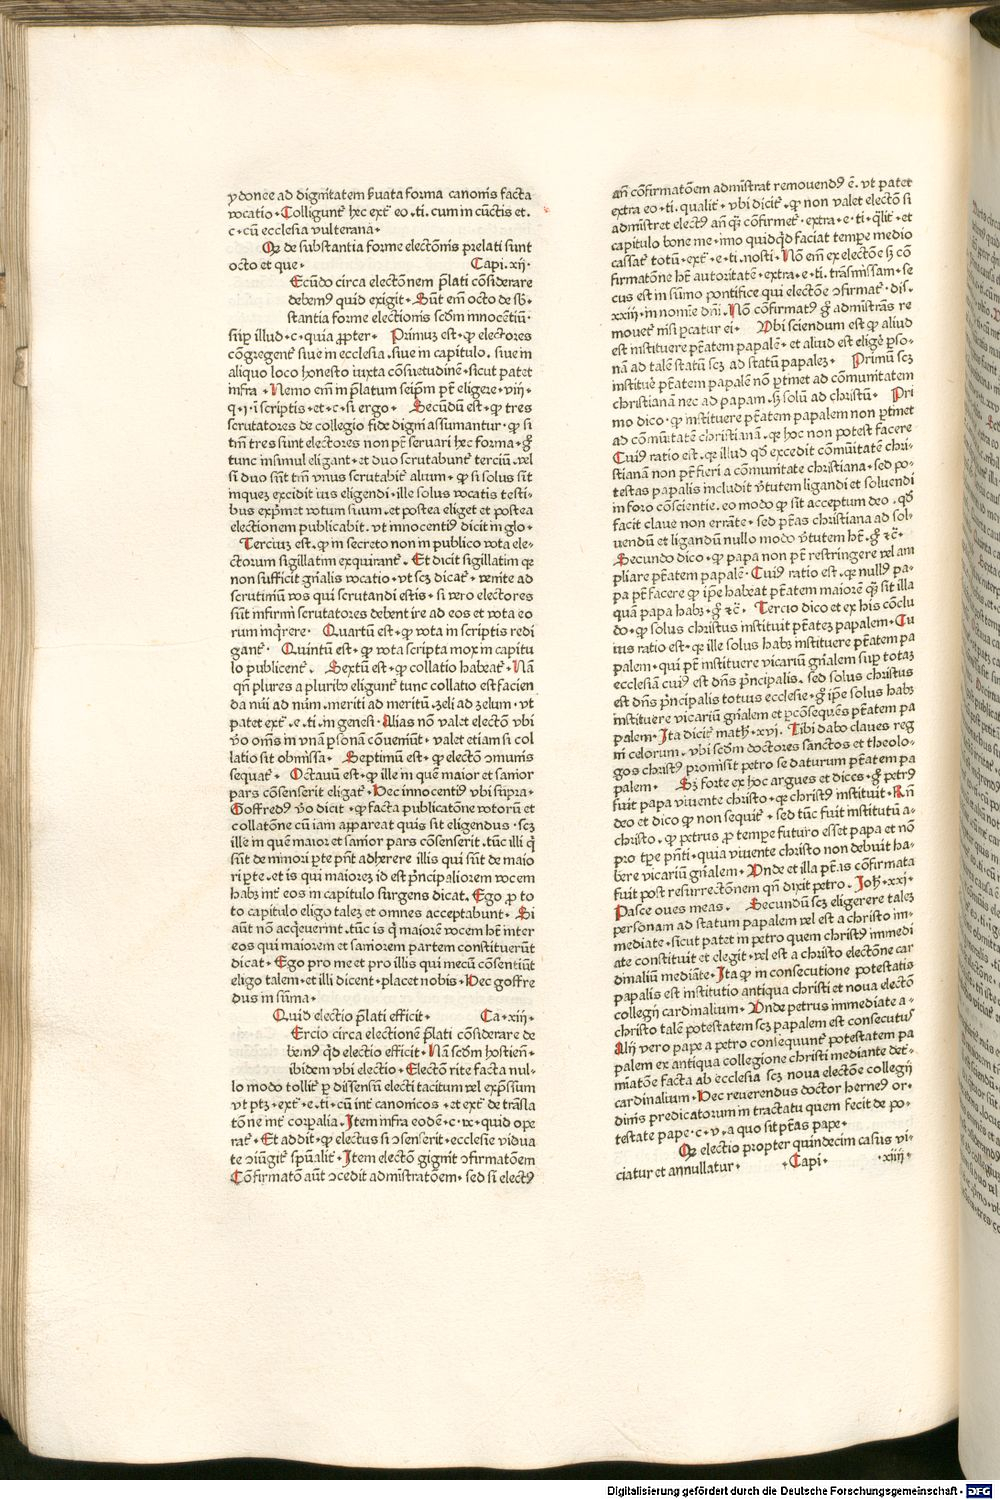 ydonee ad dignitatem ẜuata forma canonis facta
vocatio. Colligunt᷑ hec ext᷑ eo. ti. cum in cūctis et.
c. cū ecclesia vulterana.
Qꝫ de substantia forme electōnis prelati sunt
octo et que. Capi. xij.
Ecūdo circa electōnem p̄lati cōsiderare
debemꝰ quid exigit. Sūt em̄ octo de sb̄-
stantia forme electionis scd̄m innocētiū.
suꝑ illud. c. quia ꝓpter. Primuꝫ est. ꝙ electores
cōgregent᷑ siue in ecclesia. siue in capitulo. siue in
aliquo loco honesto iuxta cōsuetudinē. sicut patet
infra. Nemo em̄ in p̄latum seip̄m pt̄ eligere. viij.
q. i. si scriptis. et. c. si ergo. Secūdū est. ꝙ tres
scrutatores de collegio fide digni assumantur. ꝙ si
tm̄ tres sunt electores non pt̄ seruari hec forma. gͦ
tunc insimul eligant. et duo scrutabunt᷑ terciū. vel
si duo sūt tm̄ vnus scrutabit᷑ alium. ꝙ si solus sit
inqueꝫ excidit ius eligendi. ille solus vocatis testi-
bus exp̄met votum suum. et postea eliget et postea
electionem publicabit. vt innocentiꝰ dicit in glo.
Terciuꝫ est. ꝙ in secreto non in publico vota ele-
ctorum sigillatim exquirant᷑. Et dicit sigillatim qꝛ
non sufficit gn̄alis vocatio. vt scꝫ dicat᷑. venite ad
scrutiniū vos qui scrutandi estis. si vero electores
sūt infirmi scrutatores debent ire ad eos et vota eo
rum inq̄rere. Quartū est. ꝙ vota in scriptis redi
gant᷑. Quintū est. ꝙ vota scripta mox in capitu
lo publicent᷑. Sextū est. ꝙ collatio habeat᷑. Nā
qn̄ plures a pluribꝰ eligunt᷑ tunc collatio est facien
da nūi ad nūm. meriti ad meritū. zeli ad zelum. vt
patet ext᷑. e. ti. in genesi. Alias nō valet electō vbi
v̄o om̄s in vnā ꝑsonā cōueniūt. valet etiam si col
latio sit obmissa. Septimū est. ꝙ electō ꝯmunis
sequat᷑. Octauū est. ꝙ ille in quē maior et sanior
pars cōsenserit eligat᷑. Hec innocentiꝰ vbi supra.
Goffredꝰ v̄o dicit. ꝙ facta publicatōne votorū et
collatōne cū iam appareat quis sit eligendus. scꝫ
ille in quē maior et sanior pars cōsenserit. tūc illi q̄
sūt de minori ꝑte pn̄t adherere illis qui sūt de maio
ri ꝑte. et is qui maioreꝫ id est pͥncipaliorem vocem
habꝫ int᷑ eos in capitulo surgens dicat. Ego ꝓ to
to capitulo eligo taleꝫ et omnes acceptabunt. Si
aūt nō acq̄euerint. tūc is q̄ maiorē vocem hꝫ inter
eos qui maiorem et saniorem partem constituerūt
dicat. Ego pro me et pro illis qui mecū cōsentiūt
eligo talem. et illi dicent. placet nobis. Hec goffre
dus in sūma.
Quid electio p̄lati efficit. Ca. xiij.
Ercio circa electionē p̄lati cōsiderare de
bemꝰ q̄d electio efficit. Nā scd̄m hostien̄.
ibidem vbi electio. Electō rite facta nul-
lo modo tollit᷑ ꝑ dissensū electi tacitum vel exp̄ssum
vt ptꝫ. ext᷑. e. ti. cū int᷑ canonicos. et ext᷑ de trāsla
tōne int᷑ corꝑalia. Item infra eodē. c. ix. quid ope
rat᷑. Et addit. ꝙ electus si ꝯsenserit. ecclesie vidua
te ꝯiūgit᷑ spūalit᷑. Item electō gignit ꝯfirmatōem
Cōfirmatō aūt ꝯcedit administratōem. sed si electꝰ
an̄ cōfirmatōem administrat remouendꝰ ē. vt patet
extra eo. ti. qualit᷑. vbi dicit᷑. ꝙ non valet electō si
administret electꝰ an̄ qꝫ cōfirmet᷑. extra. e. ti. q̄lit᷑. et
capitulo bone me. imo quidqͥd faciat tempe medio
cassat᷑ totū. ext᷑. e. ti. nosti. Nō em̄ ex electōe sꝫ cō
firmatōne hꝫ autoritatē. extra. e. ti. trāsmissam. se
cus est in sūmo pontifice qui electōe ꝯfirmat᷑. dis.
xxiij. in nomine dn̄i. Nō cōfirmatꝰ gͦ administrās re
mouet᷑ nisi ꝑcatur ei. Vbi sciendum est ꝙ aliud
est instituere pt̄atem papalē. et aliud est eligē ꝑso-
nā ad talē statū scꝫ ad statū papaleꝫ. Primū scꝫ
instituē pt̄atem papalē nō ꝑtinet ad cōmunitatem
christianā nec ad papam. sꝫ solū ad christū. Pri
mo dico. ꝙ instituere pt̄atem papalem non ꝑtinet
ad cōmūitatē christianā. qꝛ hoc non potest facere
Cuiꝰ ratio est. qꝛ illud qd̄ excedit cōmūitatē chri-
stianā non pt̄ fieri a cōmunitate christiana. sed po-
testas papalis includit v̄tutem ligandi et soluendi
in foro cōscientie. eo modo ꝙ sit acceptum deo. qd̄
facit claue non errāte. sed pt̄as christiana ad sol-
uendū et ligandū nullo modo v̄tutem hꝫ. gͦ ⁊c̄.
Secundo dico. ꝙ papa non pt̄ restringere vel am
pliare pt̄atem papalē. Cuiꝰ ratio est. qꝛ nullꝰ pa-
pa pt̄ facere ꝙ ip̄e habeat pt̄atem maiorē qꝫ sit illa
quā papa habꝫ. gͦ ⁊c̄. Tercio dico et ex his cōclu
do. ꝙ solus christus instituit pt̄ateꝫ papalem. Cu
ius ratio est. qꝛ ille solus habꝫ instituere pt̄atem pa
palem. qui pt̄ instituere vicariū gn̄alem suꝑ totaꝫ
ecclesiā cuiꝰ est dn̄s pͥncipalis. sed solus christus
est dn̄s pͥncipalis totius ecclesie. gͦ ip̄e solus habꝫ
instituere vicariū gn̄alem et ꝑ cōsequēs pt̄atem pa
palem. Ita dicit᷑ math̄. xvi. Tibi dabo claues reg
ni celorum. vbi scd̄m doctores sanctos et theolo-
gos christꝰ promisit petro se daturum pt̄atem pa
palem. Sꝫ forte ex hoc argues et dices. gͦ petrꝰ
fuit papa viuente christo. qꝛ christꝰ instituit. Rn̄
deo et dico ꝙ non sequit᷑. sed tūc fuit institutū a
christo. ꝙ petrus ꝓ tempe futuro esset papa et nō
pro tꝑe pn̄ti. quia viuente christo non debuit ha-
bere vicariū gn̄alem. Vnde et illa pt̄as cōfirmata
fuit post resurrectōnem qn̄ dixit petro. Joh̄. xxi.
Pasce oues meas. Secundū scꝫ eligerere taleꝫ
personam ad statum papalem vel est a christo im-
mediate. sicut patet in petro quem christꝰ immedi
ate constituit et elegit. vel est a christo electōne car
dinaliū mediāte. Ita ꝙ in consecutione potestatis
papalis est institutio antiqua christi et noua electō
collegij cardinalium. Vnde petrus immediate a
christo talē potestatem scꝫ papalem est consecutꝰ
Alij vero pape a petro consequunt᷑ potestatem pa
palem ex antiqua collegione christi mediante det᷑-
miatōe facta ab ecclesia scꝫ noua electōe collegij
cardinalium. Hec reuerendus doctor herneꝰ or-
dinis predicatorum in tractatu quem fecit de po-
testate pape. c. v. a quo sit pt̄as pape.
Qꝫ electio propter quindecim casus vi-
ciatur et annullatur. Capi. xiiij.
Digitalisierung gefördert durch die Deutsche Forschungsgemeinschaft - DFG